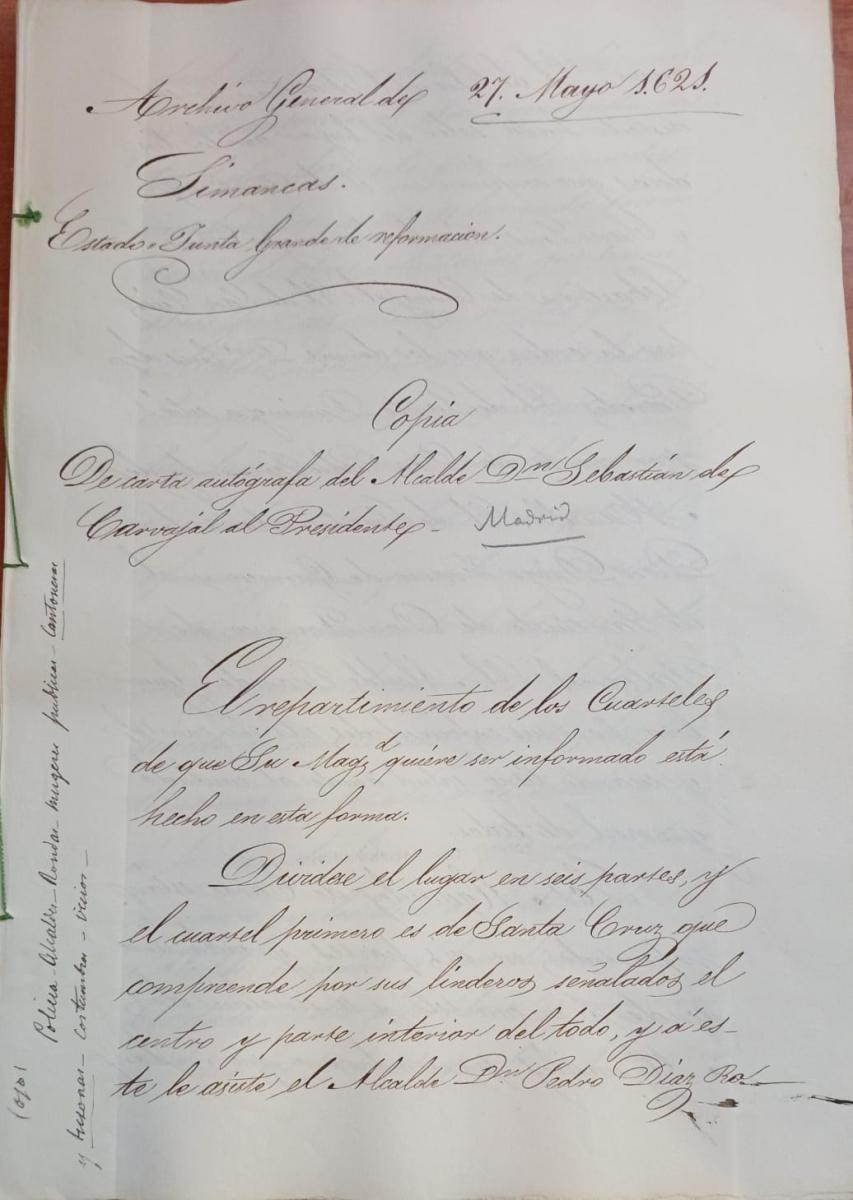 Archivo General de 27. Mayo 1.621.
Simancas.
Estado = Junta Grande de reformacion.
Copia
De carta autógrafa del Alcalde Dn Sebastián de
Carvajal al Presidente - Madrid
El repartimiento de los Cuarteles
de que Su Magd quiére ser informado está
hecho en esta forma.
Divídese el lugar en seis partes, y
el cuartel primero es de Santa Cruz que
compreende por sus linderos señalados el
centro y parte interior del todo, y á es-
te le asiste el Alcalde Dn Pedro Díaz Ro-
Policia - Alcaldes - Rondas - mugeres publicas - Cantoneras
y busconas - costumbres - vicios -